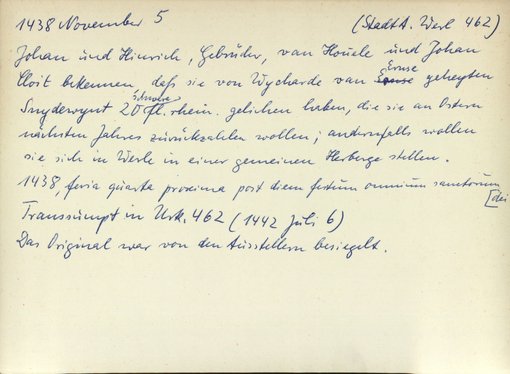 1438 November 5 (StadtA. Werl 462)
Johan und Hinrich, Gebrüder, van Houele und Johan
Cloit bekennen, daß sie von Wycharde van Ernse geheyten
Snydewynt 20 schwere fl. rhein. geliehen haben, die sie an Ostern
nächsten Jahres zurückzahlen wollen; andernfalls wollen
sie sich in Werle in einer gemeinen Herberge stellen.
1438, feria quarta proxima post diem festum omnium sanctorum
[dei
Transsumpt in Urk. 462 (1442 Juli 6)
Das Original war von den Ausstellern besiegelt.